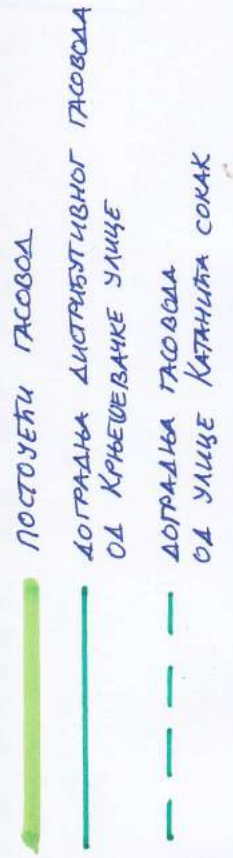 ПОСТОЈЕЋИ ГАСОВОД
ДОГРАДЊА ДИСТРИБУТИВНОГ ГАСОВОДА
ОД КРЊЕШЕВАЧКЕ УЛИЦЕ
ДОГРАДЊА ГАСОВОДА
ОД УЛИЦЕ КАТАНИЋА СОКАК